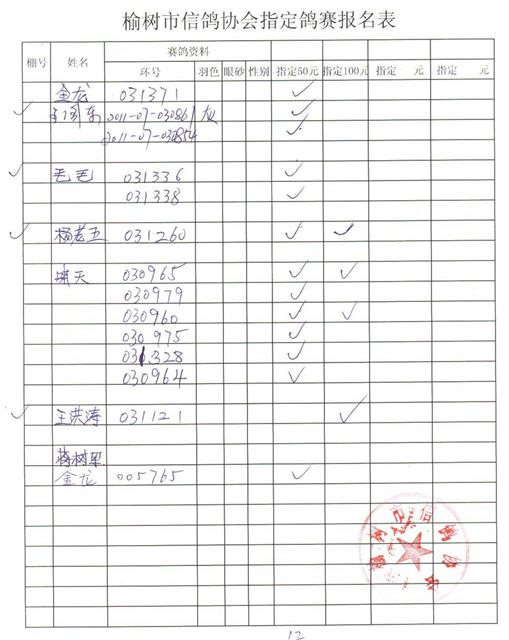 榆树市信鸽协会指定鸽赛报名表
棚号 姓名 赛鸽资料 指定50元 指定100元 指定 元 指定 元
环号 羽色 眼砂 性别
金龙 031371 ✓
✓ 东 2011-07-030861 灰 ✓
2011-07-030854 ✓
✓ 毛毛 031336 ✓
031338 ✓
✓ 杨老五 031260 ✓ ✓
啸天 030965 ✓ ✓
030979 ✓
030960 ✓ ✓
030975 ✓
031328 ✓
030964 ✓
✓ 王洪涛 031121 ✓
蒋树
金龙 005765 ✓
榆树市信鸽协会
12